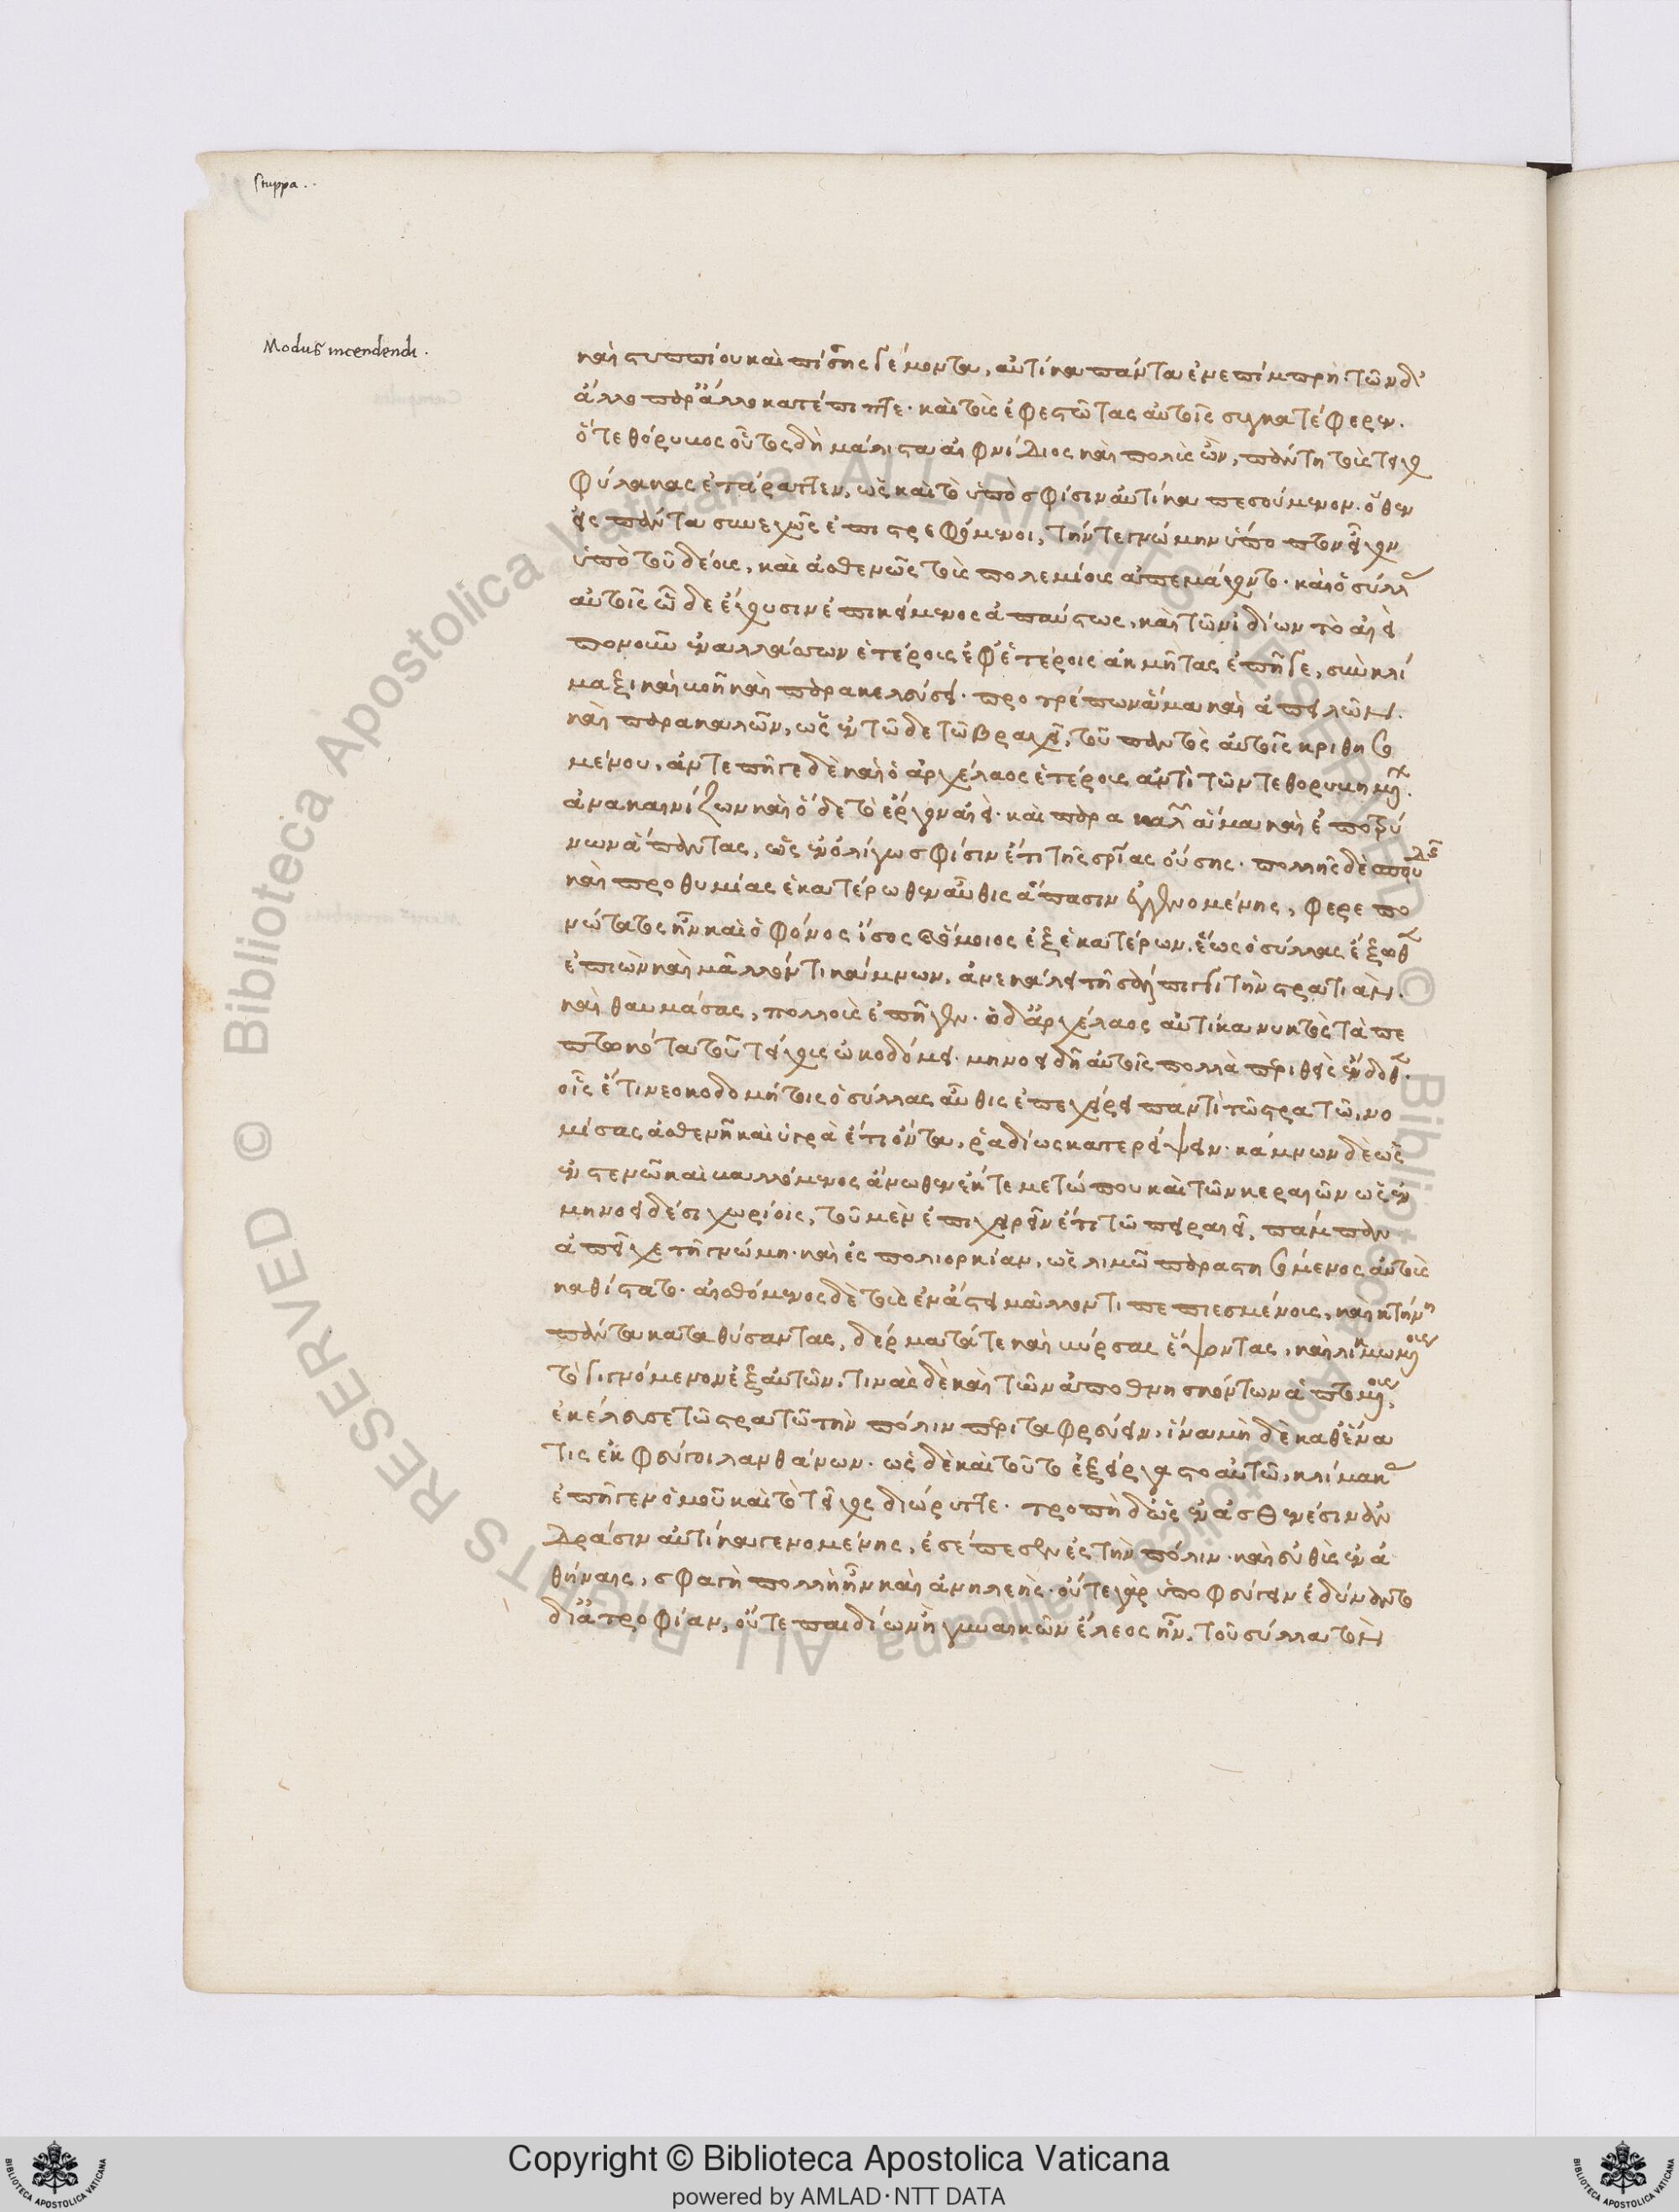 Stuppa..
Modus incendendi.
καὶ στυππίου καὶ πίσσης γέμοντα, αὐτίκα πάντα ἐνεπίμπρη· τῶν δὲ
ἄλλο παρ' ἄλλο κατέπιπτε· καὶ τοὺς ἐφεστῶτας αὐτοῖς συγκατέφερεν.
ὅ τε θόρυβος οὗτος δὴ μάλιστα αἰφνίδιος καὶ πολὺς ὢν, πάντη τοὺς τειχο
φύλακας ἐτάραττεν, ὡς καὶ τὸ ὑπὸ σφίσιν αὐτίκα πεσούμενον. ὅθεν
ἐς πάντα συνεχῶς ἐπιστρεφόμενοι, τήν τε γνώμην ὕποπτον εἶχον
ὑπὸ τοῦ δέους, καὶ ἀσθενῶς τοῖς πολεμίοις ἀπεμάχοντο. καὶ ὁ σύλλας
αὐτοῖς ὧδε ἔχουσιν ἐπικείμενος ἀπαύστως, καὶ τῶν ἰδίων τὸ αἰεὶ
πονοῦν ἐναλλάσσων ἑτέροις ἐφ' ἑτέροις ἀκμῆτας ἐπῆγε, σὺν κλί
μαξι καὶ βοῇ καὶ παρακελεύσει· προτρέπων ἅμα καὶ ἀπειλῶν.
καὶ παρακαλῶν, ὡς ἐν τῷδε τῷ βραχεῖ, τοῦ παντὸς αὐτοῖς κριθησο
μένου. ἀντεπῆγε δὲ καὶ ὁ ἀρχέλαος ἑτέρους ἀντὶ τῶν τεθορυβημένων.
ἀνακαινίζων καὶ ὅδε τὸ ἔργον αἰεί· καὶ παρακαλῶν ἅμα καὶ ἐποτρύ
νων ἅπαντας, ὡς ἐν ὀλίγω σφίσιν ἔτι τῆς σωτηρίας οὔσης. πολλῆς δὲ σπουδῆς
καὶ προθυμίας ἑκατέρωθεν αὖθις ἅπασιν ἐγγενομένης, φερεπο
νώτατος ἦν καὶ ὁ φόνος ἴσος καὶ ὅμοιος ἐξ ἑκατέρων. ἕως ὁ σύλλας ἔξωθεν
ἐπιὼν καὶ μᾶλλόν τι κάμνων, ἀνεκάλει τῇ σάλπιγγι τὴν στρατιὰν.
καὶ θαυμάσας, πολλοὺς ἐπῄνει. ὁ δ' ἀρχέλαος αὐτίκα νυκτὸς τὰ πε
πτωκότα τοῦ τείχους ὠκοδόμει. μηνοειδῆ αὐτοῖς πολλὰ περιθεὶς ἔνδοθεν.
οἷς ἔτι νεοκοδομήτοις ὁ σύλλας αὖθις ἐπεχείρει παντὶ τῷ στρατῷ, νο
μίσας ἀσθενῆ καὶ ὑγρὰ ἔτι ὄντα, ῥαδίως κατερείψειν. κάμνων δὲ ὡς
ἐν στενῷ καὶ βαλλόμενος ἄνωθεν ἔκ τε μετώπου καὶ τῶν κεραιῶν ὡς ἐν
μηνοειδέσι χωρίοις, τοῦ μὲν ἐπιχειρεῖν ἔτι τῷ πειραιεῖ, πάμπαν
ἀπεῖχε τῇ γνώμη. καὶ ἐς πολιορκίαν, ὡς λιμῷ παραστησόμενος αὐτοὺς
καθίστατο. αἰσθόμενος δὲ τοὺς ἐν ἄστει μᾶλλόν τι πεπιεσμένους, καὶ κτήνη
πάντα καταθύσαντας, δέρματά τε καὶ βύρσας ἕψοντας, καὶ λιχμωμένους
τὸ γιγνόμενον ἐξ αὐτῶν. τινὰς δὲ καὶ τῶν ἀποθνησκόντων ἁπτομένους,
ἐκέλευσε τῷ στρατῷ τὴν πόλιν περιταφρεύειν, ἵνα μὴ δὲ καθ' ἕνα
τις ἐκφεύγοι λανθάνων. ὡς δὲ καὶ τοῦτο ἐξείργαστο αὐτῷ, κλίμακας
ἐπῆγεν ὁμοῦ καὶ τὸ τεῖχος διώρυττε. τροπὴ δ' ὡς ἐν ἀσθενέσιν ἀν
δράσιν αὐτίκα γενομένης, ἐσέπεσεν ἐς τὴν πόλιν. καὶ εὐθὺς ἐν ἀ
θήναις, σφαγὴ πολλὴ ἦν καὶ ἀνηλεής. οὔτε γὰρ ὑποφεύγειν ἐδύναντο
δι' ἀτροφίαν, οὔτε παιδίων ἢ γυναικῶν ἔλεος ἦν, τοῦ σύλλα τὸν